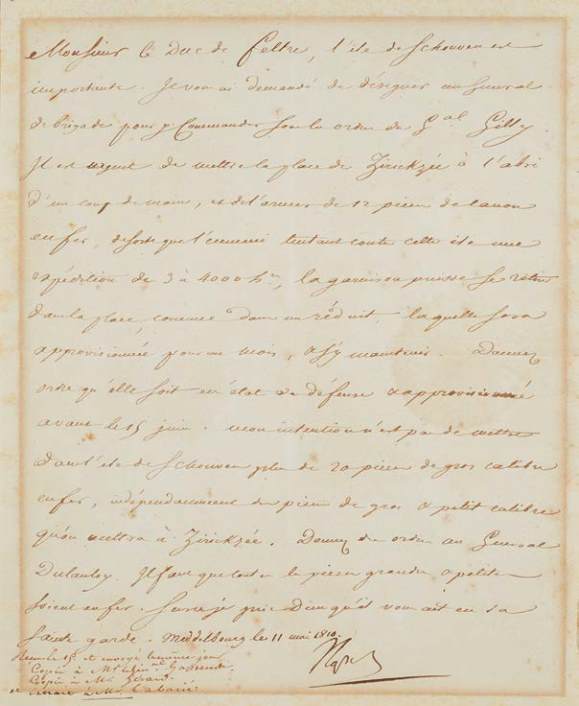 Monsieur le Duc de Feltre, l'ile de Schouwen est
importante. Je vous ai demandé de désigner un Général
de brigade pour y Commander sous les ordres du Gal Gilly.
Il est urgent de mettre la place de Zirickzée à l'abri
d'un coup de main, et de l'armer de 12 pieces de canon
en fer, de sorte que l'ennemi tentant contre cette ile une
expédition de 3 à 4000 hes, la garnison puisse se retirer
dans la place, comme dans un réduit, laquelle sera
approvisionnée pour un mois, & s'y maintenir. Donnez
ordre qu'elle soit en état de défense & approvisionnée
avant le 15 juin. mon intention n'est pas de mettre
dans l'ile de Schouwen plus de 20 pieces de gros calibre
en fer, indépendamment des pieces de gros & petit calibre
qu'on mettra à Zirickzée. Donnez des ordres au Général
Dulauloy. Il faut que toutes les pieces grandes & petites
soient en fer. Sur ce je prie Dieu qu'il vous ait en sa
sainte garde. Middelbourg le 11 mai 1810.
Np
Renvoyé et envoyé le même jour
Copie à Mr le Génal Gassendi.
Copie à Mr Gérard.
à Mr Cabanié